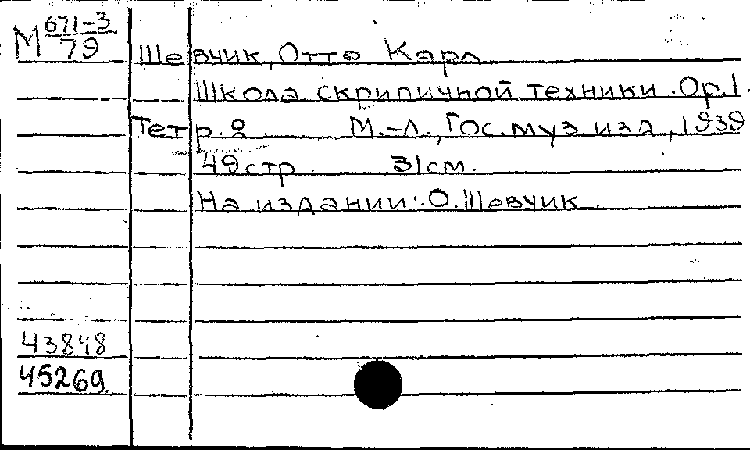 М 671-3
79
Шевчик, Отто Карл
Школа скрипичной техники. Op.1.
Тетр. 2 М.-Л., Гос. муз. изд., 1939
49 стр. 31 см.
На издании: О. Шевчик
43848
45269